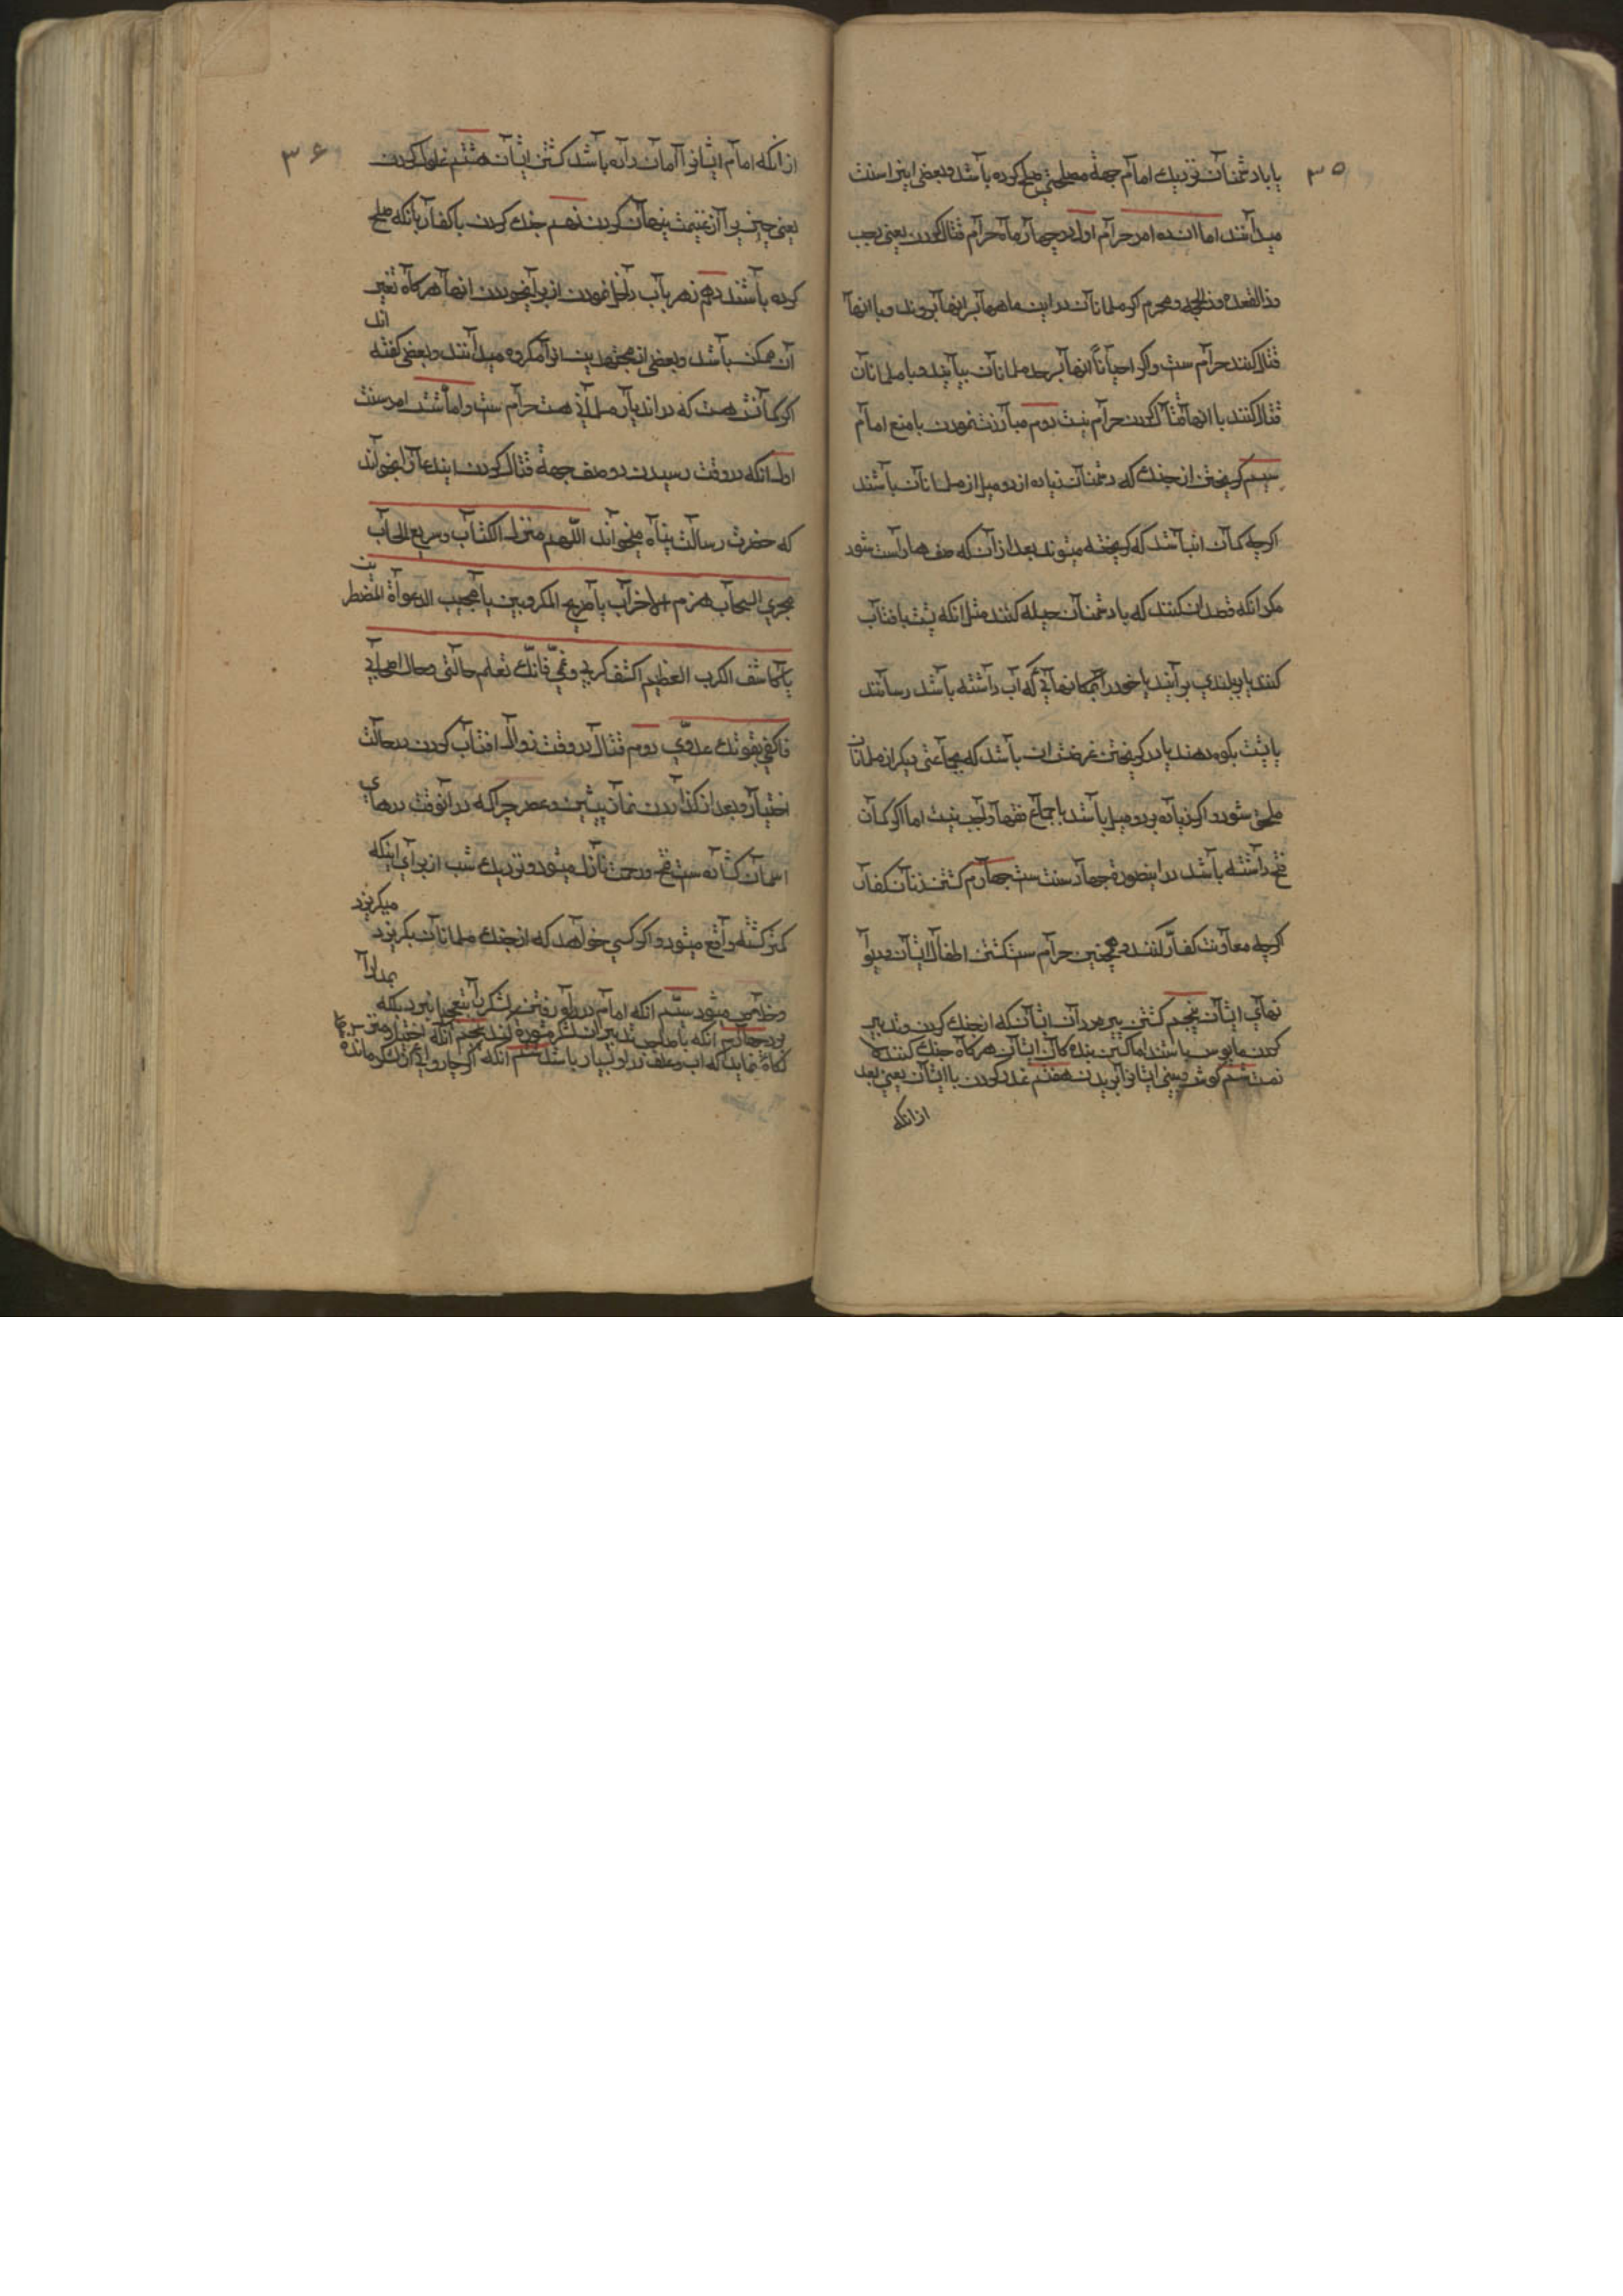 ۳۵
یا با دشمنان نزدیك امام جهة مصلحتی صلح کرده باشد و بعضی اینرا سنت
میدانند اما ان ده امر حرام اول در چهار ماه حرام قتال کردن یعنی رجب
و ذالقعده و ذالحجه و محرم اکر مسلمانان در این ماهها بر سر انها بروند و با انها
قتال کنند حرام ست و اکر احیاناً انها بر سر مسلمانان بیایند و با مسلمانان
قتال کنند با انها قتال کردن حرام نیست دوم مبارزت نمودن با منع امام
سیم کریختن از جنك که دشمنان زیاده از دو میل از مسلمانان باشند
اکرچه کمان انباشد که کریخته میشوند بعد از ان که صف ها راست شود
مکر انکه قصد ان کنند که با دشمنان حیله کنند مثل انکه پشت بافتاب
کنند یا بر بلندی برایند یا خود را بمکانهایی که اب داشته باشد رسانند
یا پشت بکوه دهند یا در کریختن غرضش ان باشد که بجماعتی دیکر از مسلمانان
ملحق شود و اکر زیاده بر دو میل باشد باجماع فقها واجب نیست اما اکر کمان
فتح داشته باشد در اینصورة جهاد سنت ست چهارم کشتن زنان کفار
اکرچه معاونت کفار کنند و همچنین حرام ست کشتن اطفال ایشان و دیوا
نهای ایشان پنجم کشتن پیر مردان ایشان که از جنك کردن و تدبیر
کردن مایوس باشند اما کشتن بنده کان ایشان هر کاه جنك کنند
نیست ششم کوش و بینی ایشانرا بریدن هفتم غدر کردن با ایشان یعنی بعد
از انکه
۳۶
از انکه امام ایشانرا امان داده باشد کشتن ایشان هشتم غلول کردن
یعنی چیزیرا از غنیمت پنهان کردن نهم جنك کردن با کفار با انکه صلح
کرده باشند دهم زهر باب داخل نمودن از برای خوردن انها هر کاه تغیر
ان ممکن باشد و بعضی از مجتهدین انرا مکروه میدانند و بعضی کفته اند
اکر کمانش هست که در اندیار مسلمانی هست حرام ست و اما شش امر سنت
اول انکه در وقت رسیدن دو صف جهة قتال کردن ایندعا را بخواند
که حضرت رسالت پناه میخواند اللّهم منزل الکتاب و سریع الحساب
مجری السحاب هزم الاحزاب یا صریخ المکروبین یا مجیب الدعواة المضطرین
یا کاشف الکرب العظیم اکشف کربی و غمّی فانّك تعلم حالتی و حال اصحابی
فاکفنی بقوتك عدوّی دوم قتال در وقت زوال افتاب کردن در حالت
اختیار و بعد از کذاردن نماز پیشین و عصر چرا که در انوقت درهای
اسمان کشاده ست فتح و رحمت نازل میشود و نزدیك شب از برای اینکه
کمتر کشته واقع میشود و اکر کسی خواهد که از جنك مسلمانان بکریزد میکریزد
و خلاص میشود سیّم انکه امام در راه رفتن لشکر با بتعجیل نبرد بلکه بمدارا
برد چهارم انکه با صاحب تدبیران لشکر مشورة کند پنجم انکه اختیار منزل
کاه نماید که اب و علف در او بسیار باشد ششم انکه اکر چاروایی از لشکر مانده